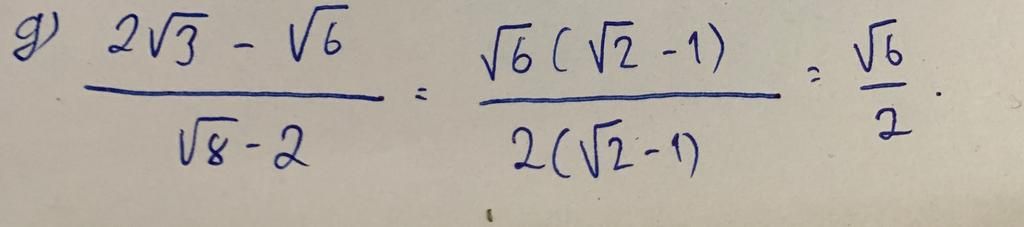 g) (2√3 - √6)/(√8 - 2) = (√6(√2 - 1))/(2(√2 - 1)) = √6/2.